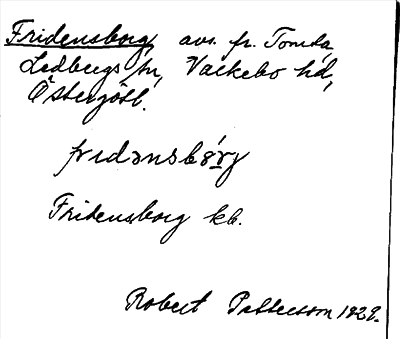 Fridensborg avs. fr. Tomta,
Ledbergs sn, Valkebo hd,
Östergötl.
fridənsbórj
Fridensborg kb.
Robert Pettersson 1929.